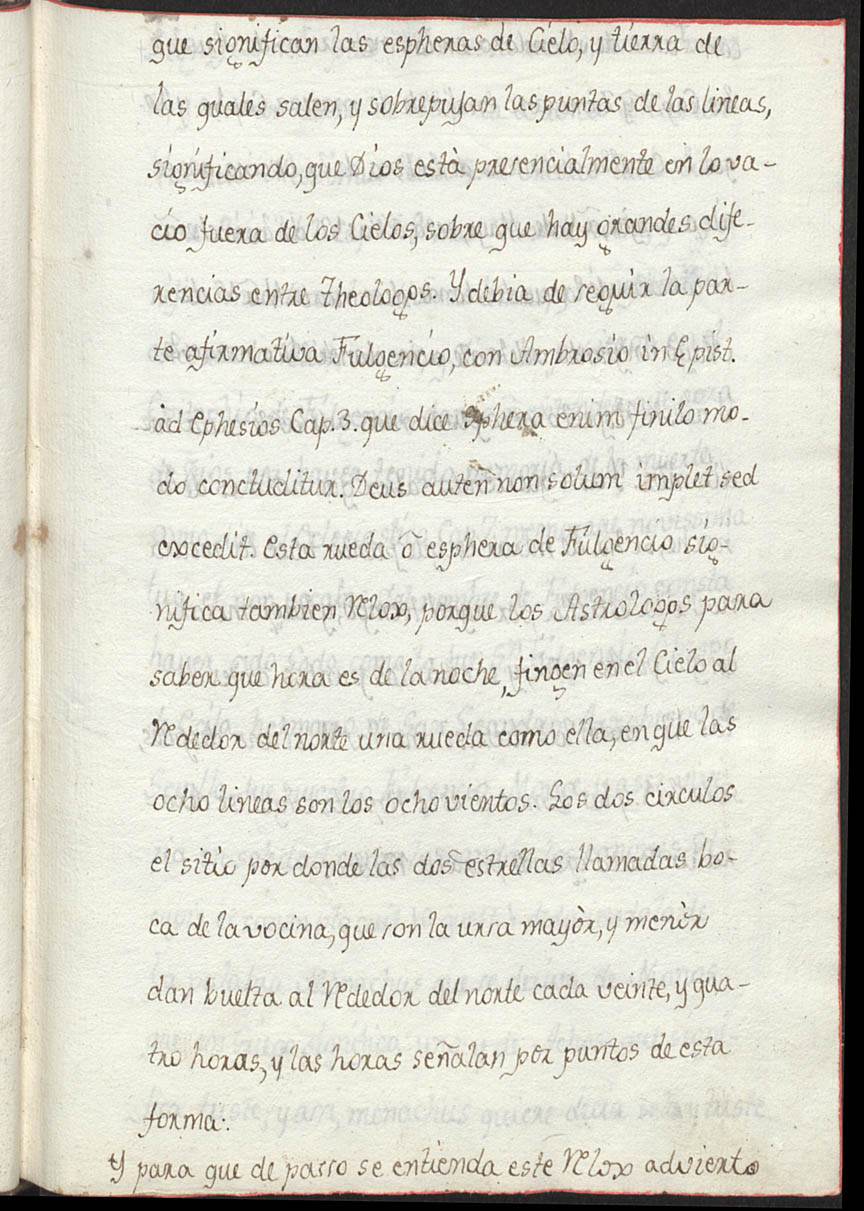 que significan las espheras de Cielo, y tierra de
las quales salen, y sobrepujan las puntas de las lineas,
significando, que Dios està presencialmente en lo va-
cio fuera de los Cielos, sobre que hay grandes dife-
rencias entre Theologos. Y debia de seguir la par-
te afirmativa Fulgencio, con Ambrosio in Epist.
ad Ephesios Cap. 3. que dice Sphera enim finilo mo-
do concluditur. Deus autem̃ non solum implet sed
excedit. Esta rueda ò esphera de Fulgencio sig-
nifica tambien Relox, porque los Astrologos para
saber que hora es de la noche, fingen en el Cielo al
Rededor del norte una rueda como ella, en que las
ocho lineas son los ocho vientos. Los dos circulos
el sitio por donde las dos estrellas llamadas bo-
ca de la vocina, que son la ursa mayòr, y menòr
dan buelta al Rededor del norte cada veinte, y qua-
tro horas, y las horas señalan por puntos de esta
forma:.
Y para que de passo se entienda este Relox advierto